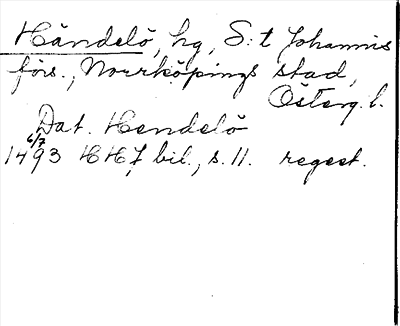 Händelö, hg, S:t Johannis
förs., Norrköpings stad,
Österg. l.
Dat. Hendelö
1493 6/7 HH 7, bil., s. 11. regest.